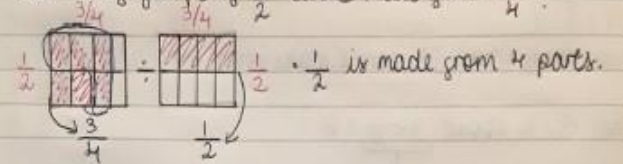 3/4 3/4 2 4
1/2 ÷ 1/2 · 1/2 is made from 4 parts.
3/4 1/2